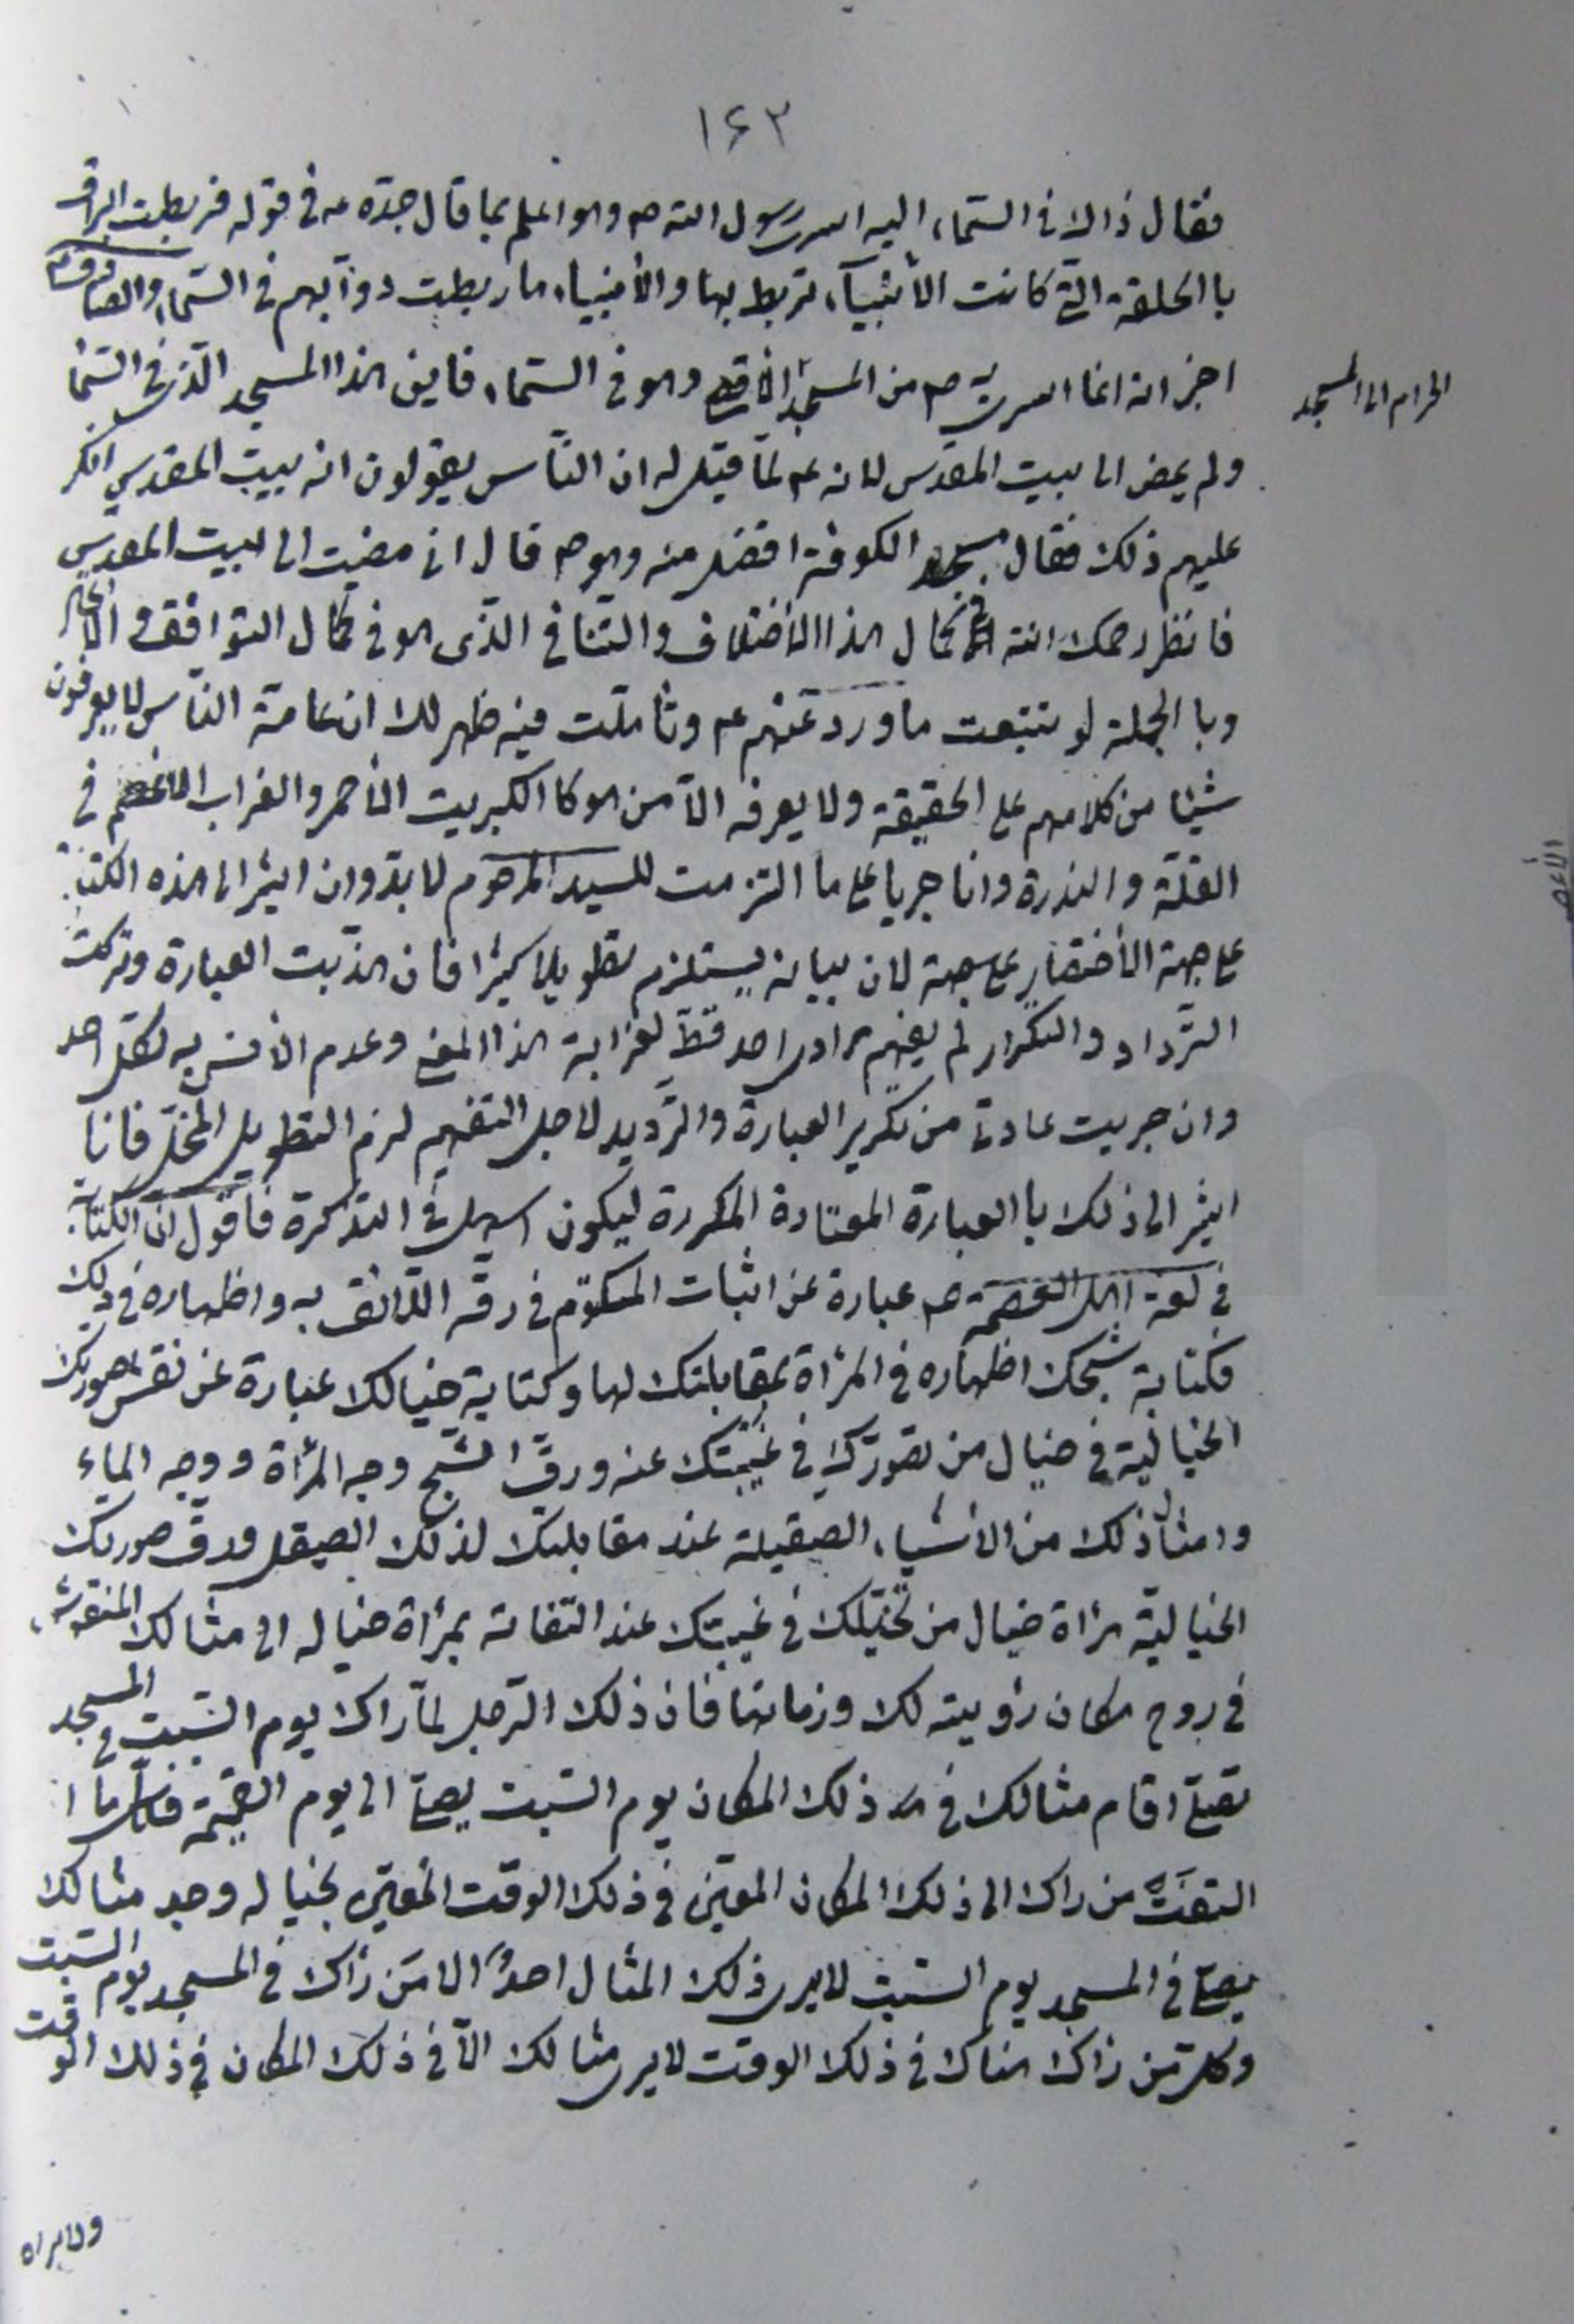 ١٤٣
فقال ذالا فى السّماء اليه اسرى رسول الله ص وهو اعلم بما قال جدّه ص فى قوله فربطت البراق
با الحلقة الّتى كانت الأنبيآء تربط بها والأنبياء ما ربطت دوآبهم فى السّماء والصادق ع
اخبر انه انما اسرى به ص من المسجد الحرام الى المسجد الأقصى وهو فى السّماء فاين هذا المسجد الّذى فى السّما
ولم يمض الى بيت المقدس لانه ع لمّا قيل له ان النّاس يقولون انه بيت المقدس انكر
عليهم ذلك فقال مسجد الكوفة افضل منه وهو ص قال انى مضيت الى البيت المقدس
فانظر رحمك الله الى كمال هذا الأختلاف والتنافى الذّى هو فى كمال التّوافق و
وبا الجملة لو تتبعت ما ورد عنهم ع وتأملت فيه ظهر لك ان عامّة النّاس لا يعرفون
شيئا من كلامهم على الحقيقة ولا يعرفه الّا من هو كا الكبريت الأحمر والغراب الأعصم فى
القلّة والندرة وانا جريا على ما التزمت للسيد المرحوم لا بدّ وان اشير الى هذه الكتابة
على جهة الأختصار على جهة لان بيانه يستلزم تطويلا كثيرا فان هذّبت العبارة وتركت
التّرداد والتكرار لم يفهم مرادى احد قطّ لغرابة هذا المعنى وعدم الأنس به لكل احد
وان جريت عادتى من تكرير العبارة والتّرديد لاجل التفهيم لزم التطويل المخلّ فانا
اشير الى ذلك با العبارة المعتادة المكررة ليكون اسهل فى التذكرة فاقول انّ الكتابة
فى لغة اهل العصمة ع عبارة عن اثبات المكتوم فى رقّه اللّائق به واظهاره فى ذلك
فكتابة شبحك اظهاره فى المرأة بمقابلتك لها وكتابة خيالك عبارة عن نقش صورتك
الخياليّة فى خيال من تصورّك فى غيبتك عنه ورقّ الشّبح وجه المرأة ووجه الماء
وامثال ذلك من الأشياء الصيقيلة عند مقابلتك لذلك الصيقل ورقّ صورتك
الخياليّة مرأة خيال من تخيّلك فى غيبتك عند التفاته بمرأة خياله الى مثالك المنقوش
فى روح مكان رؤيته لك وزمانها فان ذلك الرّجل لمّا رأك يوم السّبت فى المسجد
تصلّى اقام مثالك فى ذلك المكان يوم السّبت يصلّى الى يوم القيمة فكلّما ا
التفتَ من رأك الى ذلك المكان المعيّن فى ذلك الوقت المعيّن بخياله وجد مثالك
يصلّى فى المسجد يوم السّبت لا يرى ذلك المثال احدٌ الّا مَن رأك فى المسجد يوم السّبت
وكلّ من رأك هناك فى ذلك الوقت لا يرى مثالك الّا فى ذلك المكان فى ذلك الوقت
ولا يراه